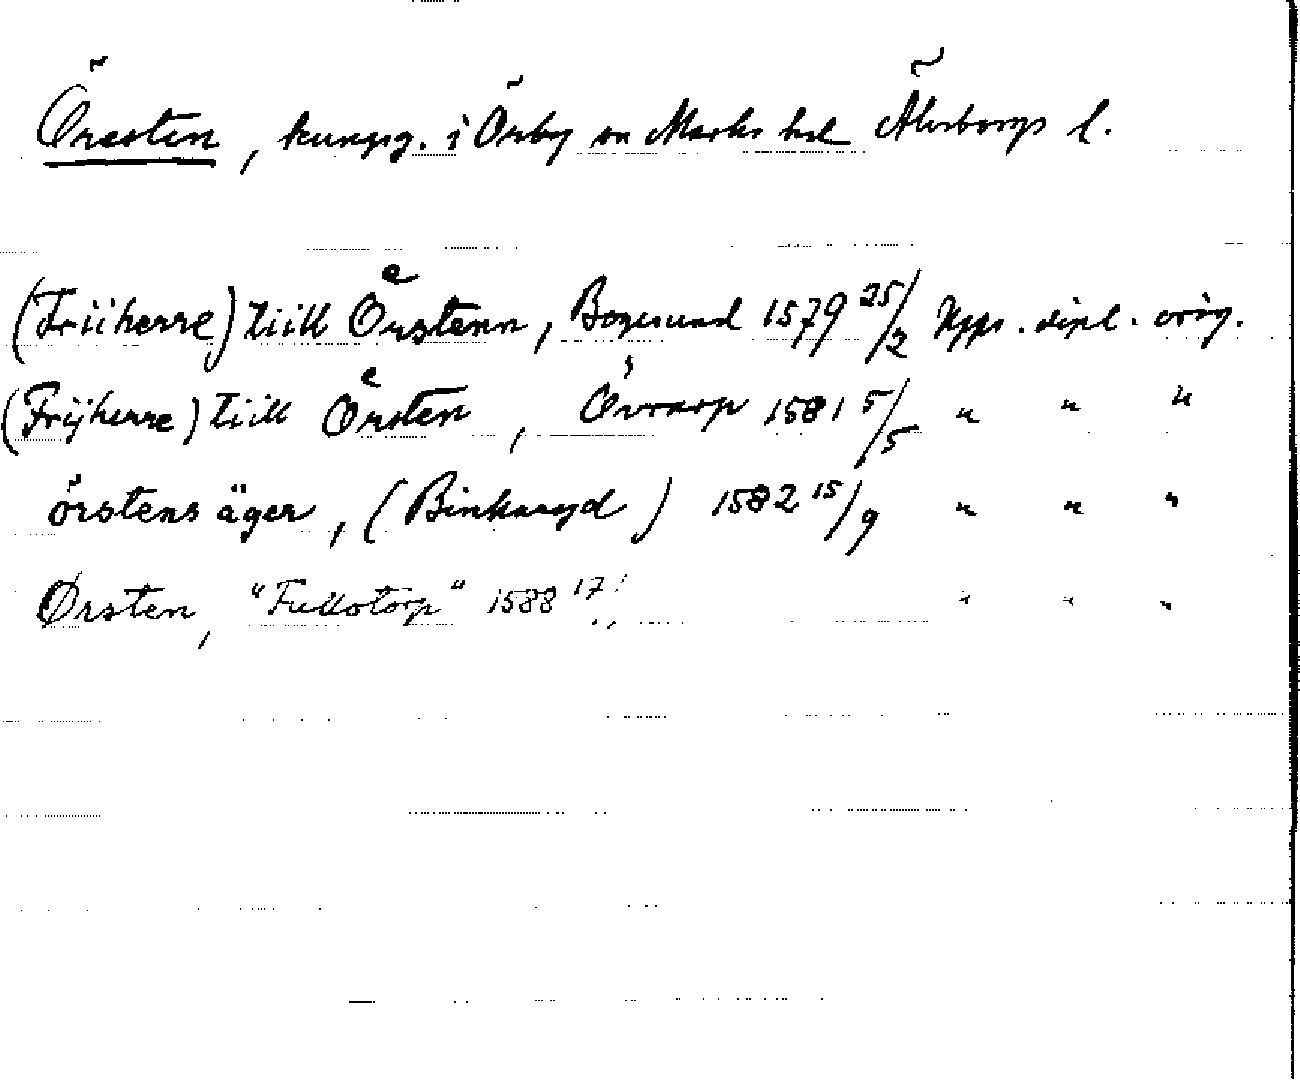 Öresten, kungsg. i Örby sn Marks hd Älvsborgs l.
(Friiherre) tiill Örstenn, Bogesund 1579 25/2 Upps. dipl. orig.
(Frijherre) tiill Örsten, 1581 5/5 " " "
örstens äger, ( ) 1582 15/9 " " "
Ørsten, "Fullotorp" 1588 17/ " " "